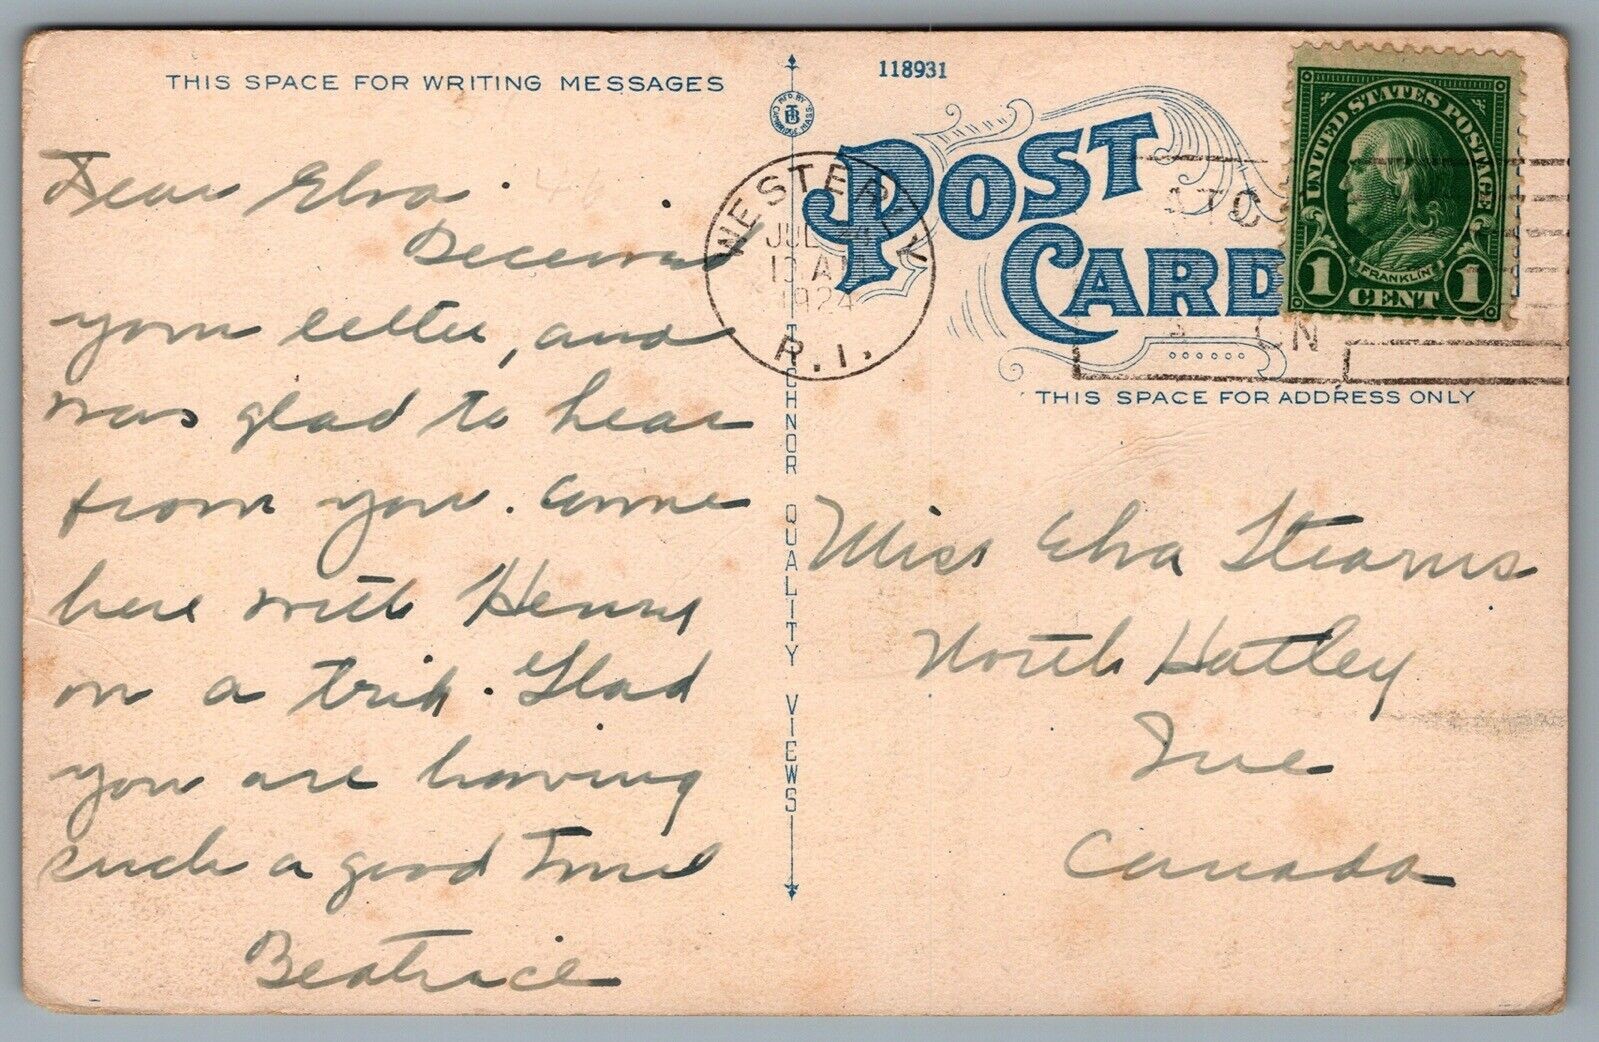 THIS SPACE FOR WRITING MESSAGES
118931
MFD. BY
TB
CAMBRIDGE, MASS.
POST
CARD
UNITED STATES POSTAGE
FRANKLIN
1 CENT 1
WESTERLY
JUL
10 AM
1924
R.I.
THIS SPACE FOR ADDRESS ONLY
TECHNOR QUALITY VIEWS
Dear Elva.
Received
your letter, and
was glad to hear
from you. Came
here with Henry
on a trip. Glad
you are having
such a good time
Beatrice
Miss Elva Stearns
North Hatley
Que
Canada